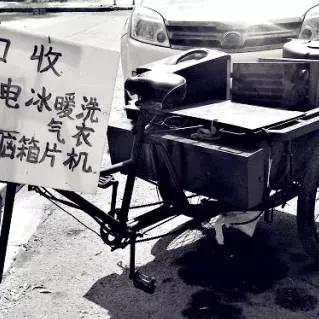 回收
电冰暖洗
气衣
箱片机